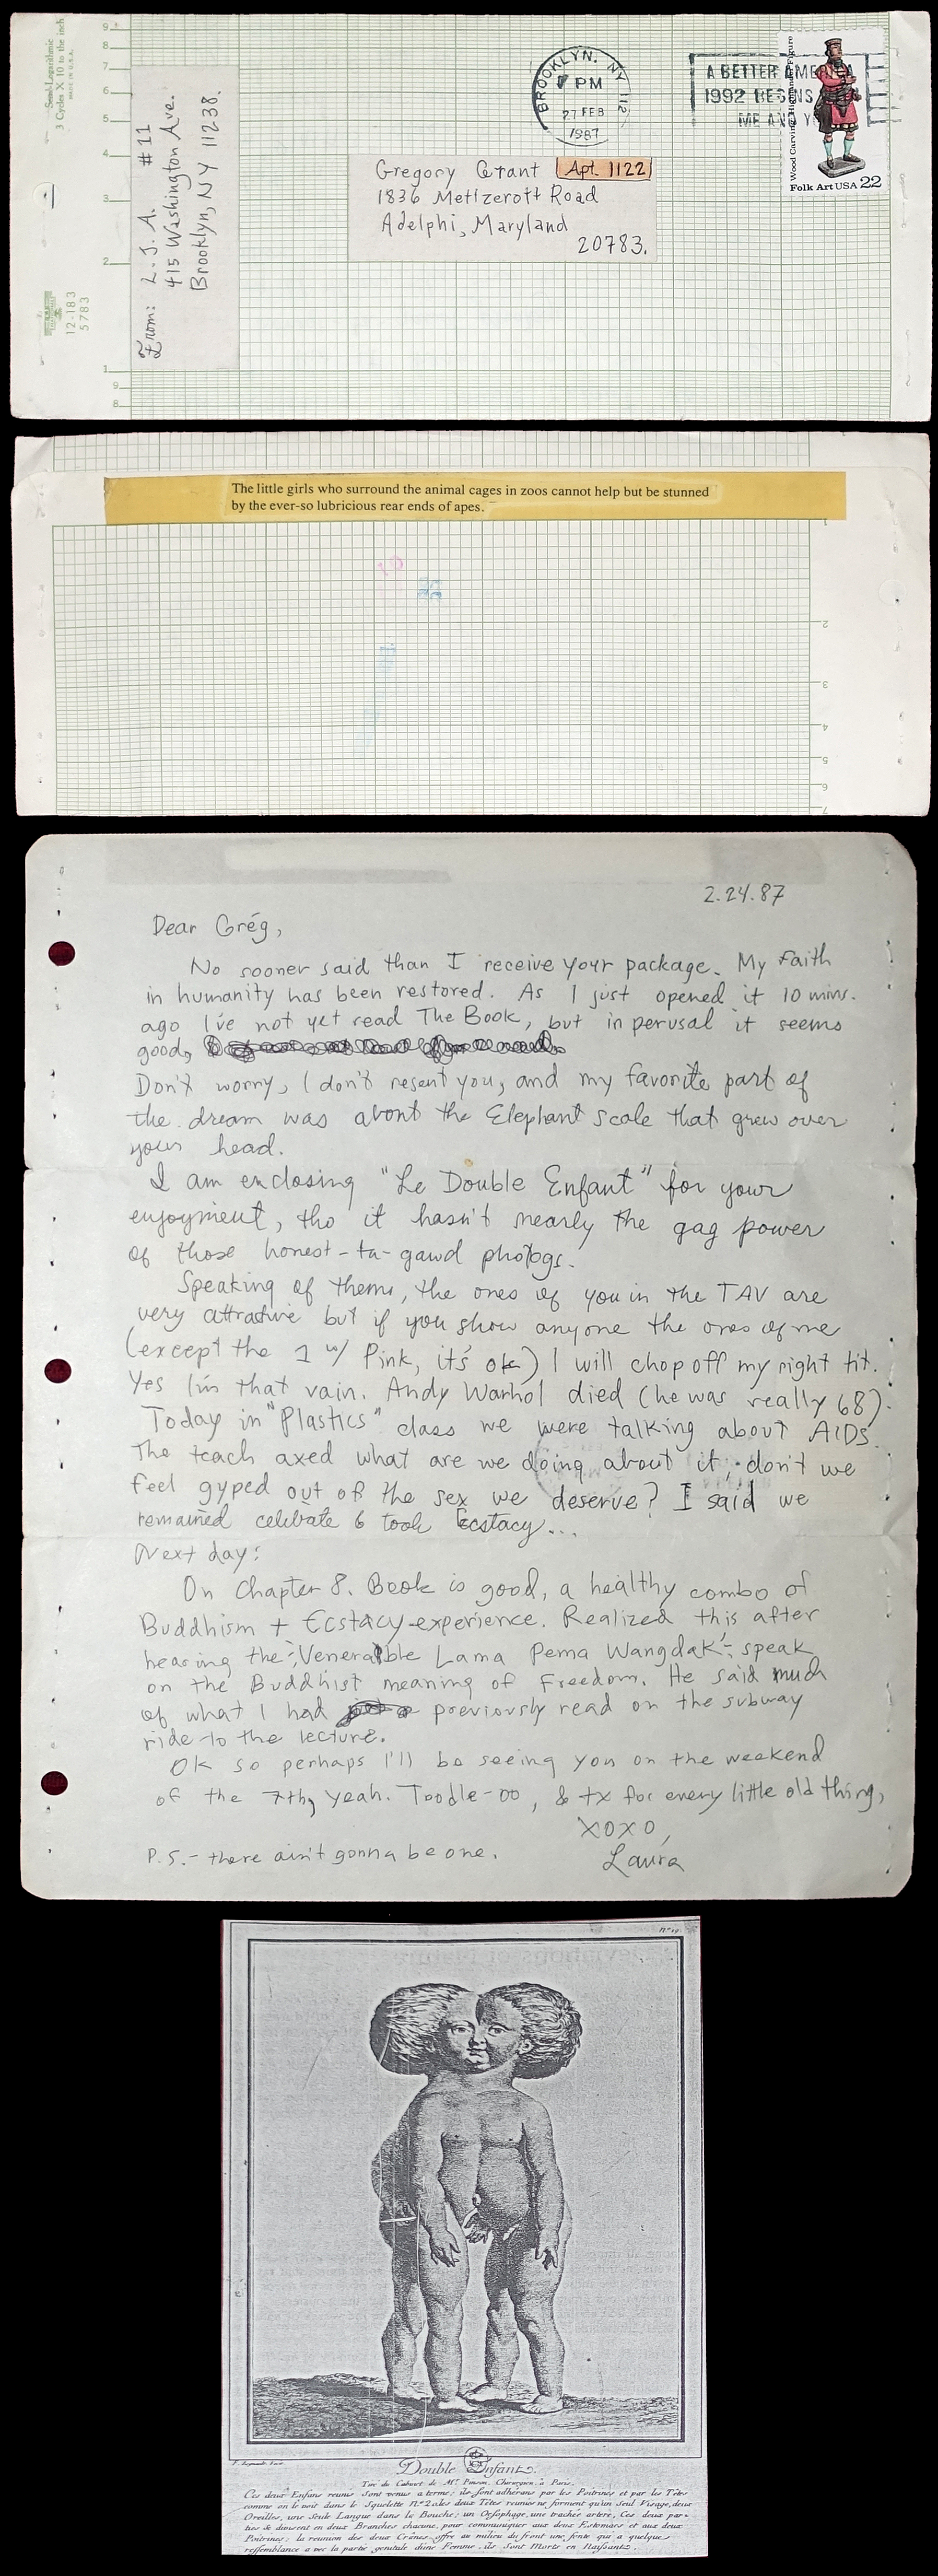 Semi-Logarithmic
3 Cycles X 10 to the inch
MADE IN U.S.A.
9
8
7
6
5
4
3
2
1
9
8
12-183
5783
From: L. J. A. #11
415 Washington Ave.
Brooklyn, NY 11238.
BROOKLYN, NY 112
PM
27 FEB
1987
A BETTER AME
1992 BEGINS
ME AND Y
Wood Carving: Highlander Figure
Folk Art USA 22
Gregory Grant Apt. 1122
1836 Metlzerott Road
Adelphi, Maryland
20783.
The little girls who surround the animal cages in zoos cannot help but be stunned
by the ever-so lubricious rear ends of apes.
1
2
3
4
5
6
7
2.24.87
Dear Greg,
No sooner said than I receive your package. My Faith
in humanity has been restored. As I just opened it 10 mins.
ago I've not yet read The Book, but in perusal it seems
good,
Don't worry, I don't resent you, and my favorite part of
the dream was about the Elephant scale that grew over
your head.
I am enclosing "Le Double Enfant" for your
enjoyment, tho it hasn't nearly the gag power
of those honest-ta-gawd photogs.
Speaking of thems, the ones of you in the TAV are
very attractive but if you show anyone the ones of me
(except the 1 w/ Pink, it's ok) I will chop off my right tit.
Yes I'm that vain. Andy Warhol died (he was really 68).
Today in "Plastics" class we were talking about AIDS.
The teach axed what are we doing about it, don't we
feel gyped out of the sex we deserve? I said we
remained celibate & took Ecstacy...
Next day:
On Chapter 8. Book is good, a healthy combo of
Buddhism + Ecstacy-experience. Realized this after
hearing the "Venerable Lama Pema Wangdak" speak
on the Buddhist meaning of Freedom. He said much
of what I had previously read on the subway
ride to the lecture.
OK so perhaps I'll be seeing you on the weekend
of the 7th, yeah. Toodle-oo, & tx for every little old thing,
XOXO,
Laura
P.S.- there ain't gonna be one.
Double Enfant.
Tiré du Cabinet de Mr. Pinson, Chirurgien, à Paris.
Ces deux Enfans reunis Sont venus a terme; ils sont adhérans par les Poitrines et par les Têtes
comme on le voit dans le Squelette No. 2. les deux Têtes reunies ne forment qu'un Seul Visage, deux
Oreilles, une Seule Langue dans la Bouche; un Oesophage, une trachée artère, Ces deux par-
ties se divisent en deux Branches chacune, pour communiquer aux deux Estomacs et aux deux
Poitrines; la reunion des deux Crânes offre au milieu du front une fente qui a quelque
ressemblance avec la partie genitale d'une Femme, ils Sont Morts en Naissants.